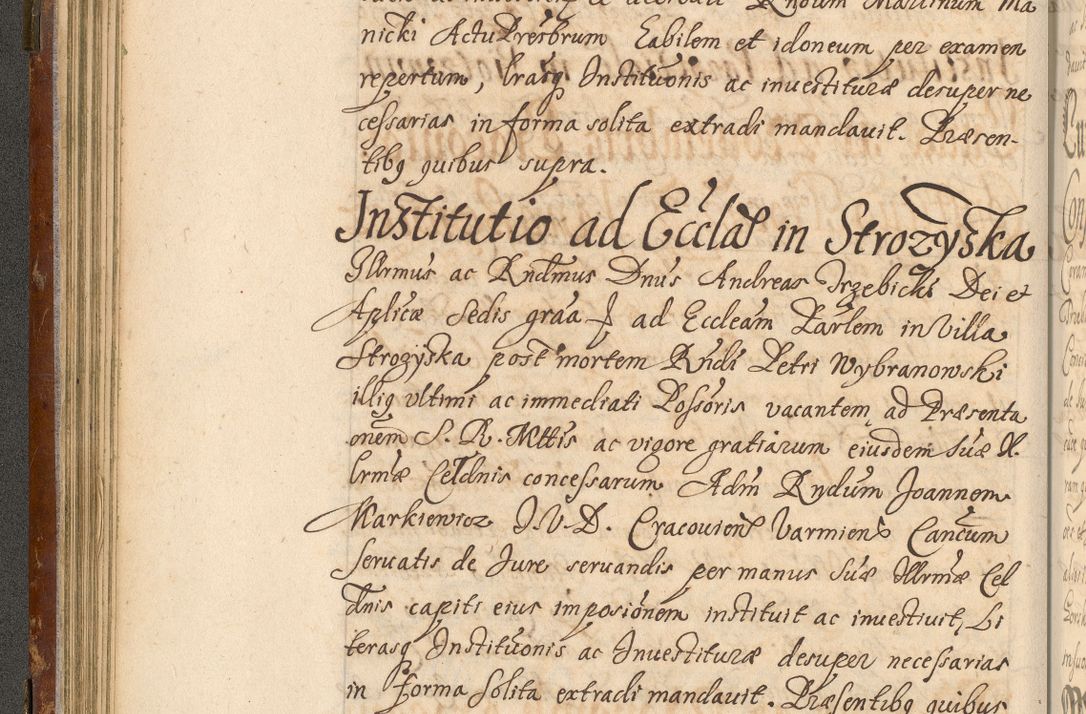 nicki ActuPresbrum habilem et idoneum per examen
repertum, lrasq Institutionis ac investituræ desuper ne
cessarias in forma solita extradi mandavit. Præsen-
tibq quibus supra.
Institutio ad Eccla͠e in Strozyska
Illrmus ac Rndmus Dnus Andreas Trzebicki Dei et
Aplicæ Sedis graa ad Eccleam Parlem in Villa
Strozyska post mortem Rndi Petri Wybranowski
illiq ultimi ac immediati Possoris vacantem, ad Præsenta
onem S. R. Mttis ac vigore gratiarum eiusdem Suæ Il
lrmæ Celdnis concessarum Adm Rndum Joannem
Markiewicz J.V.D. Cracovien Varmiens Cancum
servatis de Jure servandis per manus Suæ Illrmæ Cel
dnis capiti eius imposionem instituit ac investivit, Li
terasq Institutionis ac Investituræ desuper necessarias
in forma solita extradi mandavit. Præsentibq quibus